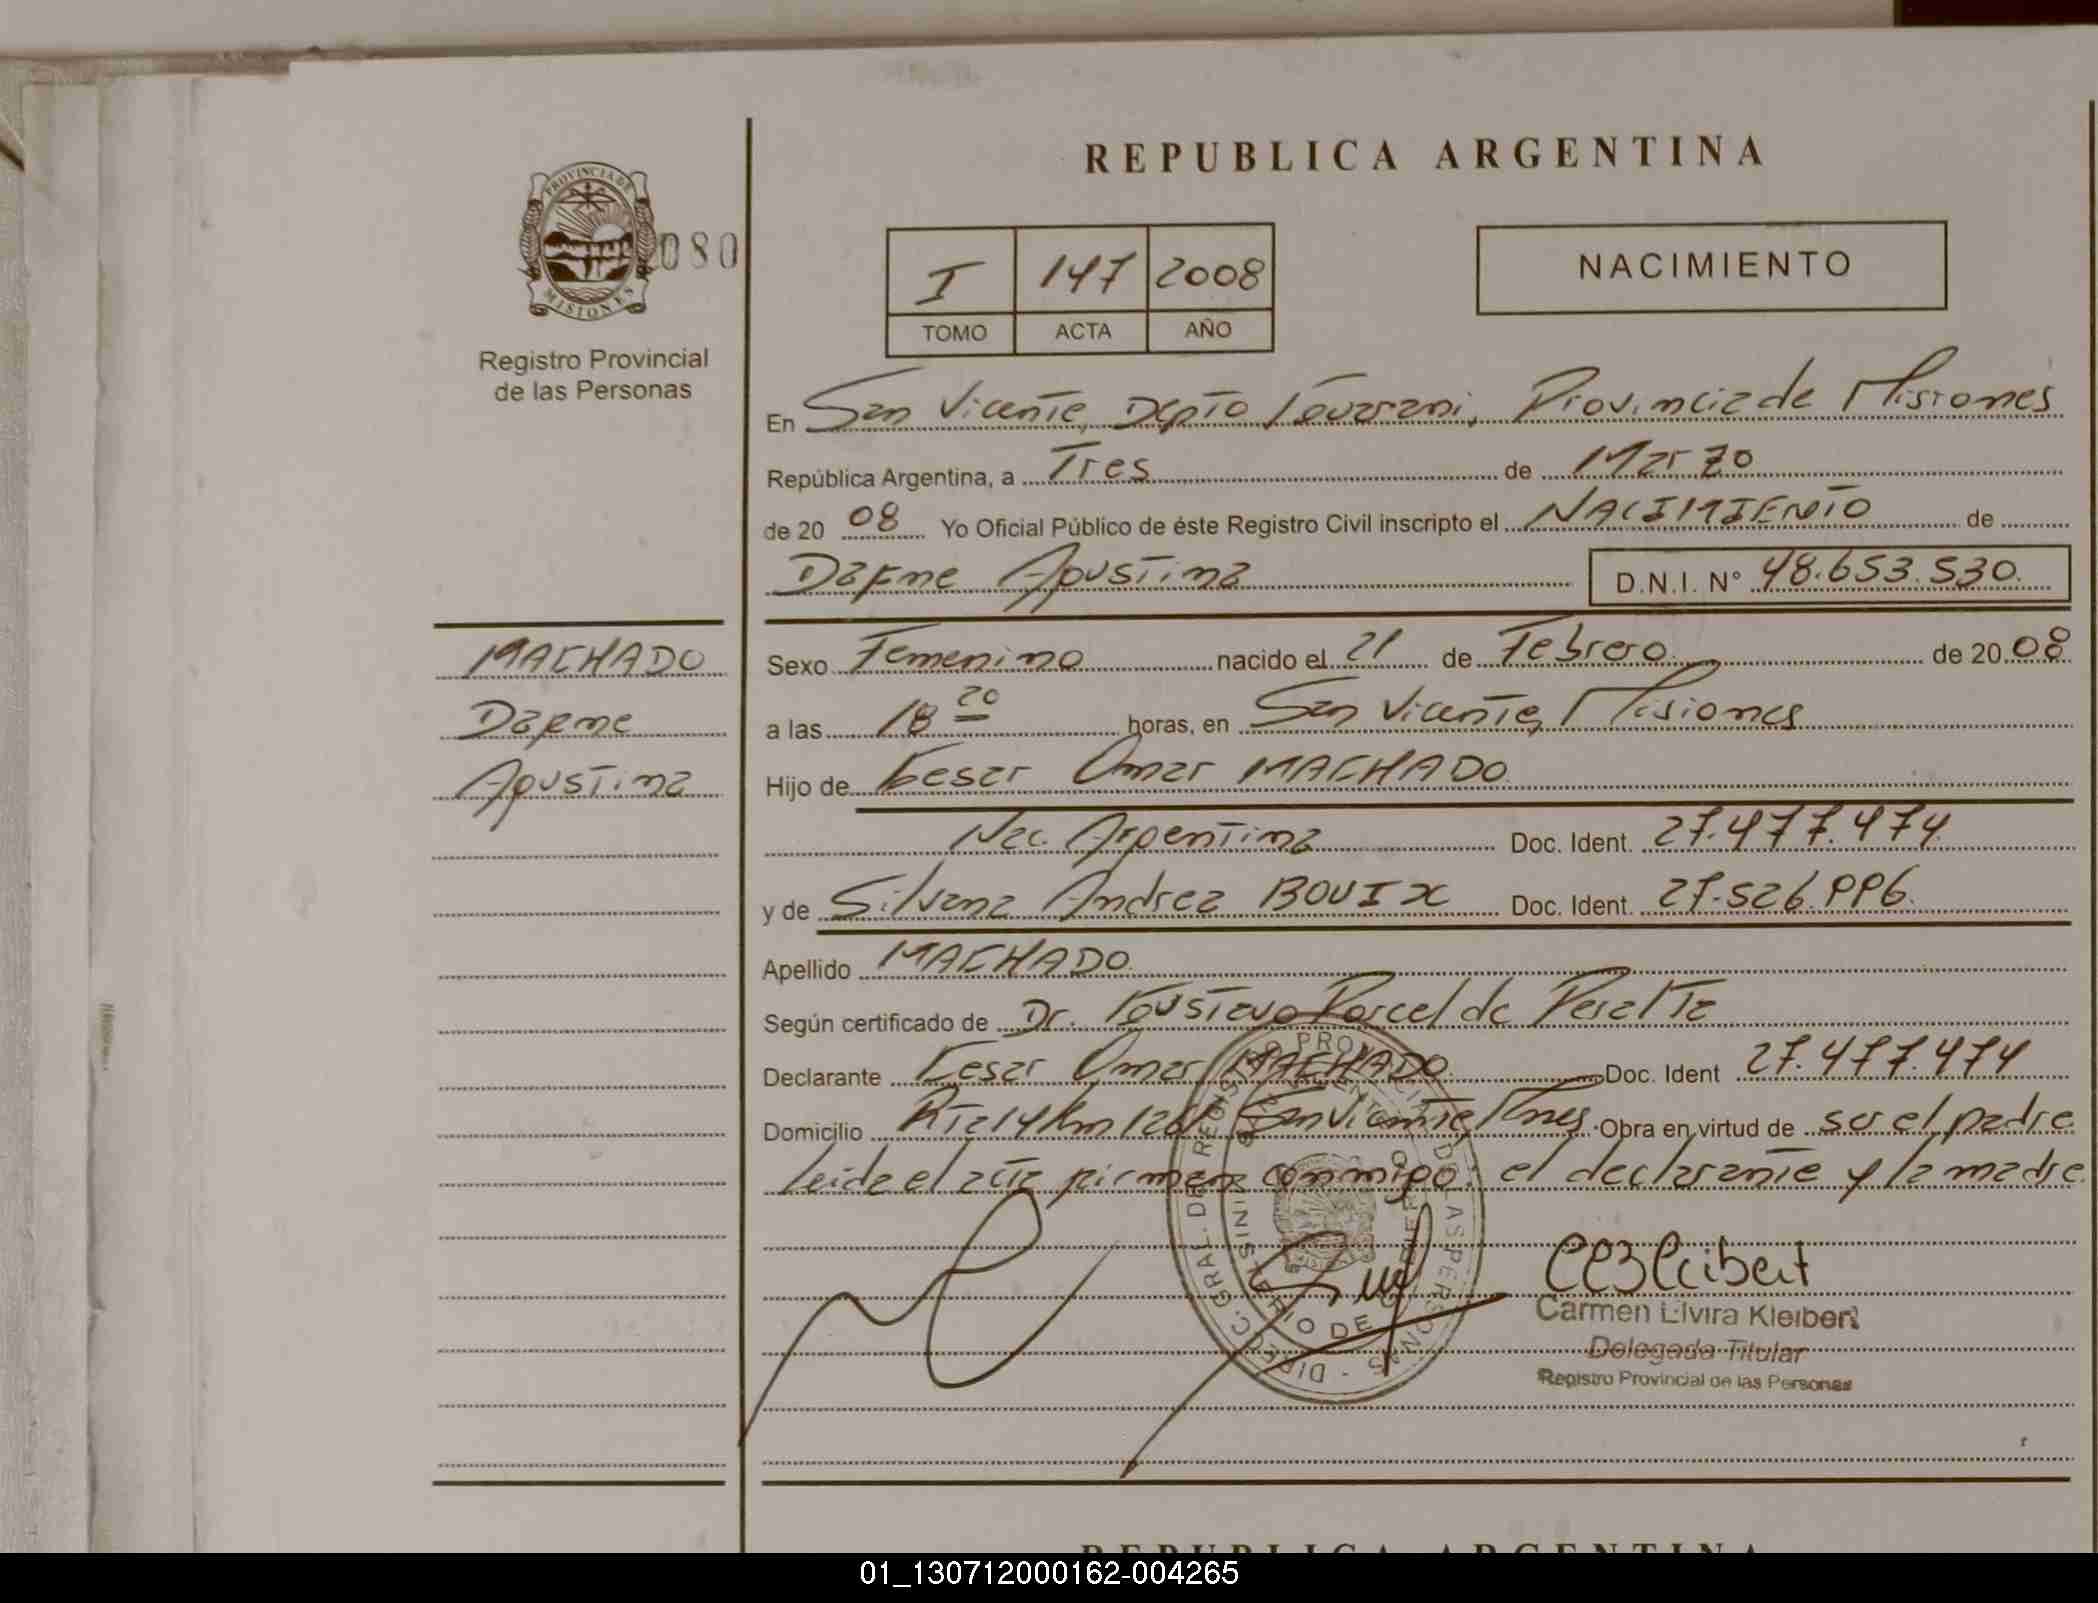 REPUBLICA ARGENTINA
PROVINCIA DE
MISIONES
080
Registro Provincial
de las Personas
I 147 2008
TOMO ACTA AÑO
NACIMIENTO
En San Vicente, Depto Guarani, Provincia de Misiones
República Argentina, a Tres de Marzo
de 20 08 Yo Oficial Público de éste Registro Civil inscripto el NACIMIENTO de
Dafne Agustina D.N.I. N° 48.653.530.
MACHADO
Dafne
Agustina
Sexo Femenino nacido el 21 de Febrero de 20 08
a las 18 20 horas, en San Vicente, Misiones
Hijo de Cesar Omar MACHADO
Nac. Argentina Doc. Ident. 27.477.474
y de Silvana Andrea BOUIX Doc. Ident. 27.526.996.
Apellido MACHADO
Según certificado de Dr. Gustavo Porcel de Peralta
Declarante Cesar Omar MACHADO Doc. Ident 27.477.474
Domicilio Rta 14 Km 1261 San Vicente Mnes. Obra en virtud de ser el padre
Leida el acta firman conmigo: el declarante y la madre.
Carmen Elvira Kleibert
Delegada Titular
Registro Provincial de las Personas
REPUBLICA ARGENTINA
01_130712000162-004265